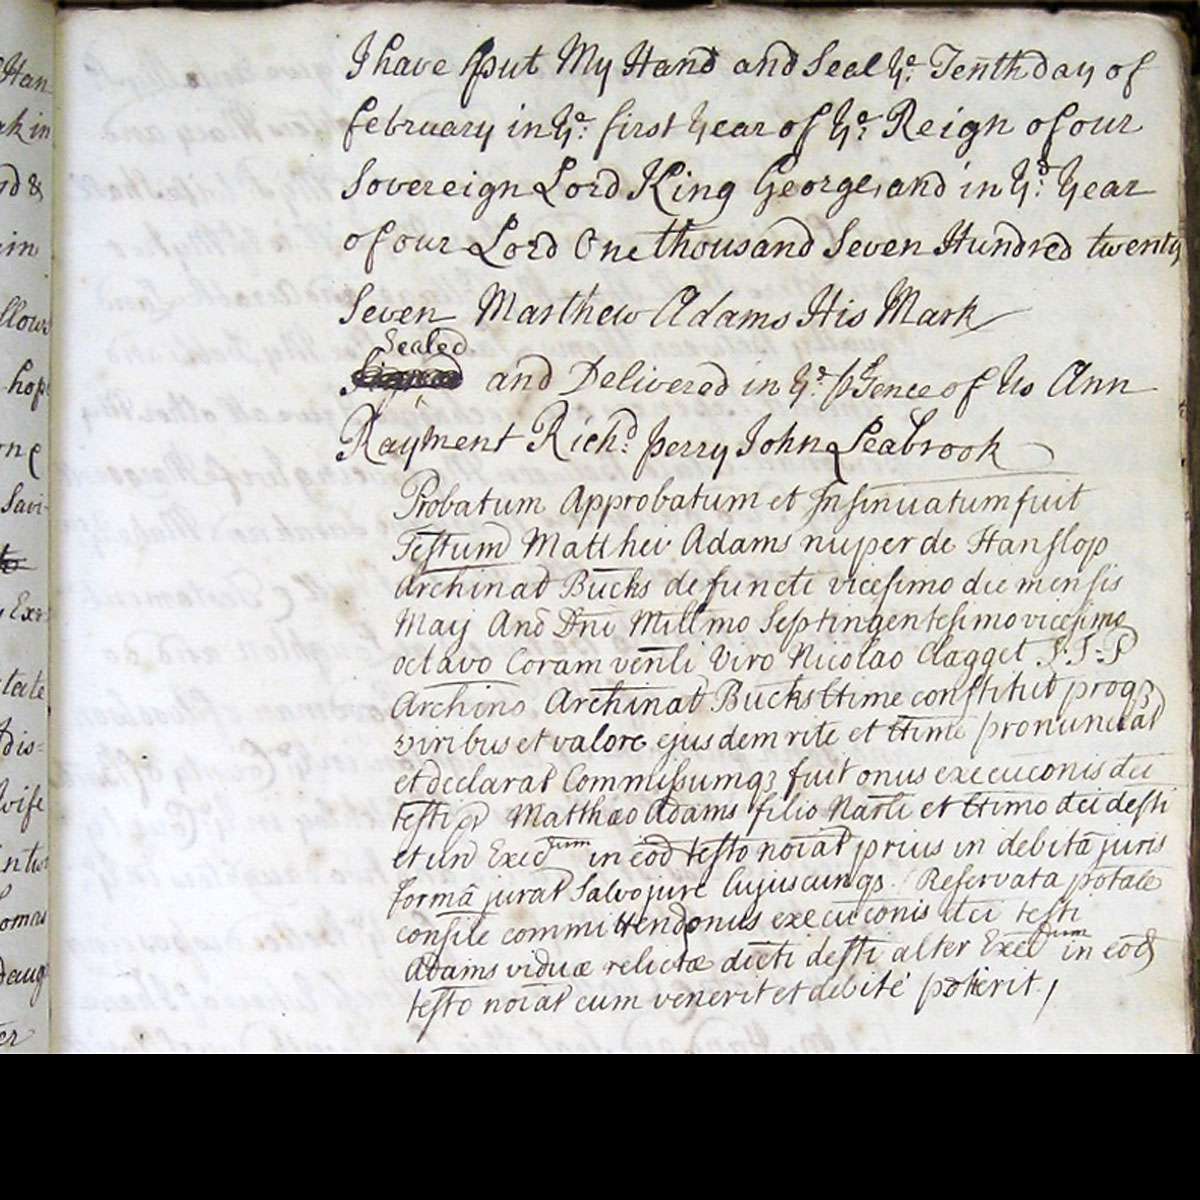 I have put My Hand and Seal Ye. Tenth day of
february in Ye: first Year of Ye: Reign of our
Sovereign Lord King George, and in Ye: Year
of our Lord One thousand Seven Hundred twenty
Seven Matthew Adams His Mark
Sealed
and Delivered in Ye: pSence of Us Ann
Rayment Richd: perry John Seabrook
Probatum Approbatum et Insinuatum fuit
Testum Matthei Adams nuper de Hanslop
Archinat Bucks defuncti vicesimo die mensis
Maij Ano Dni Millmo Septingentesimo vicesimo
octavo Coram venli Viro Nicolao Clagget S:T:P
Archino Archinat Bucks ltime constitut proqz
viribus et valore ejusdem rite et ltime pronunciat
et declarat Commissumqz fuit onus execuconis dci
testi Matthæo Adams filio Narli et ltimo dci defti
et un Execrum in eod testo noiat prius in debitâ juris
formâ jurat Salvo jure Cujuscunqs. Reservata potate
consile committend onus execuconis dci testi
Adams viduæ relictæ dicti defti alter Execrum in eod
testo noiat cum venerit et debité petierit /
Han
ak in
&
in
llows
hop
rne
Savi-
Exe
tate
dis=
wife
omas
daug